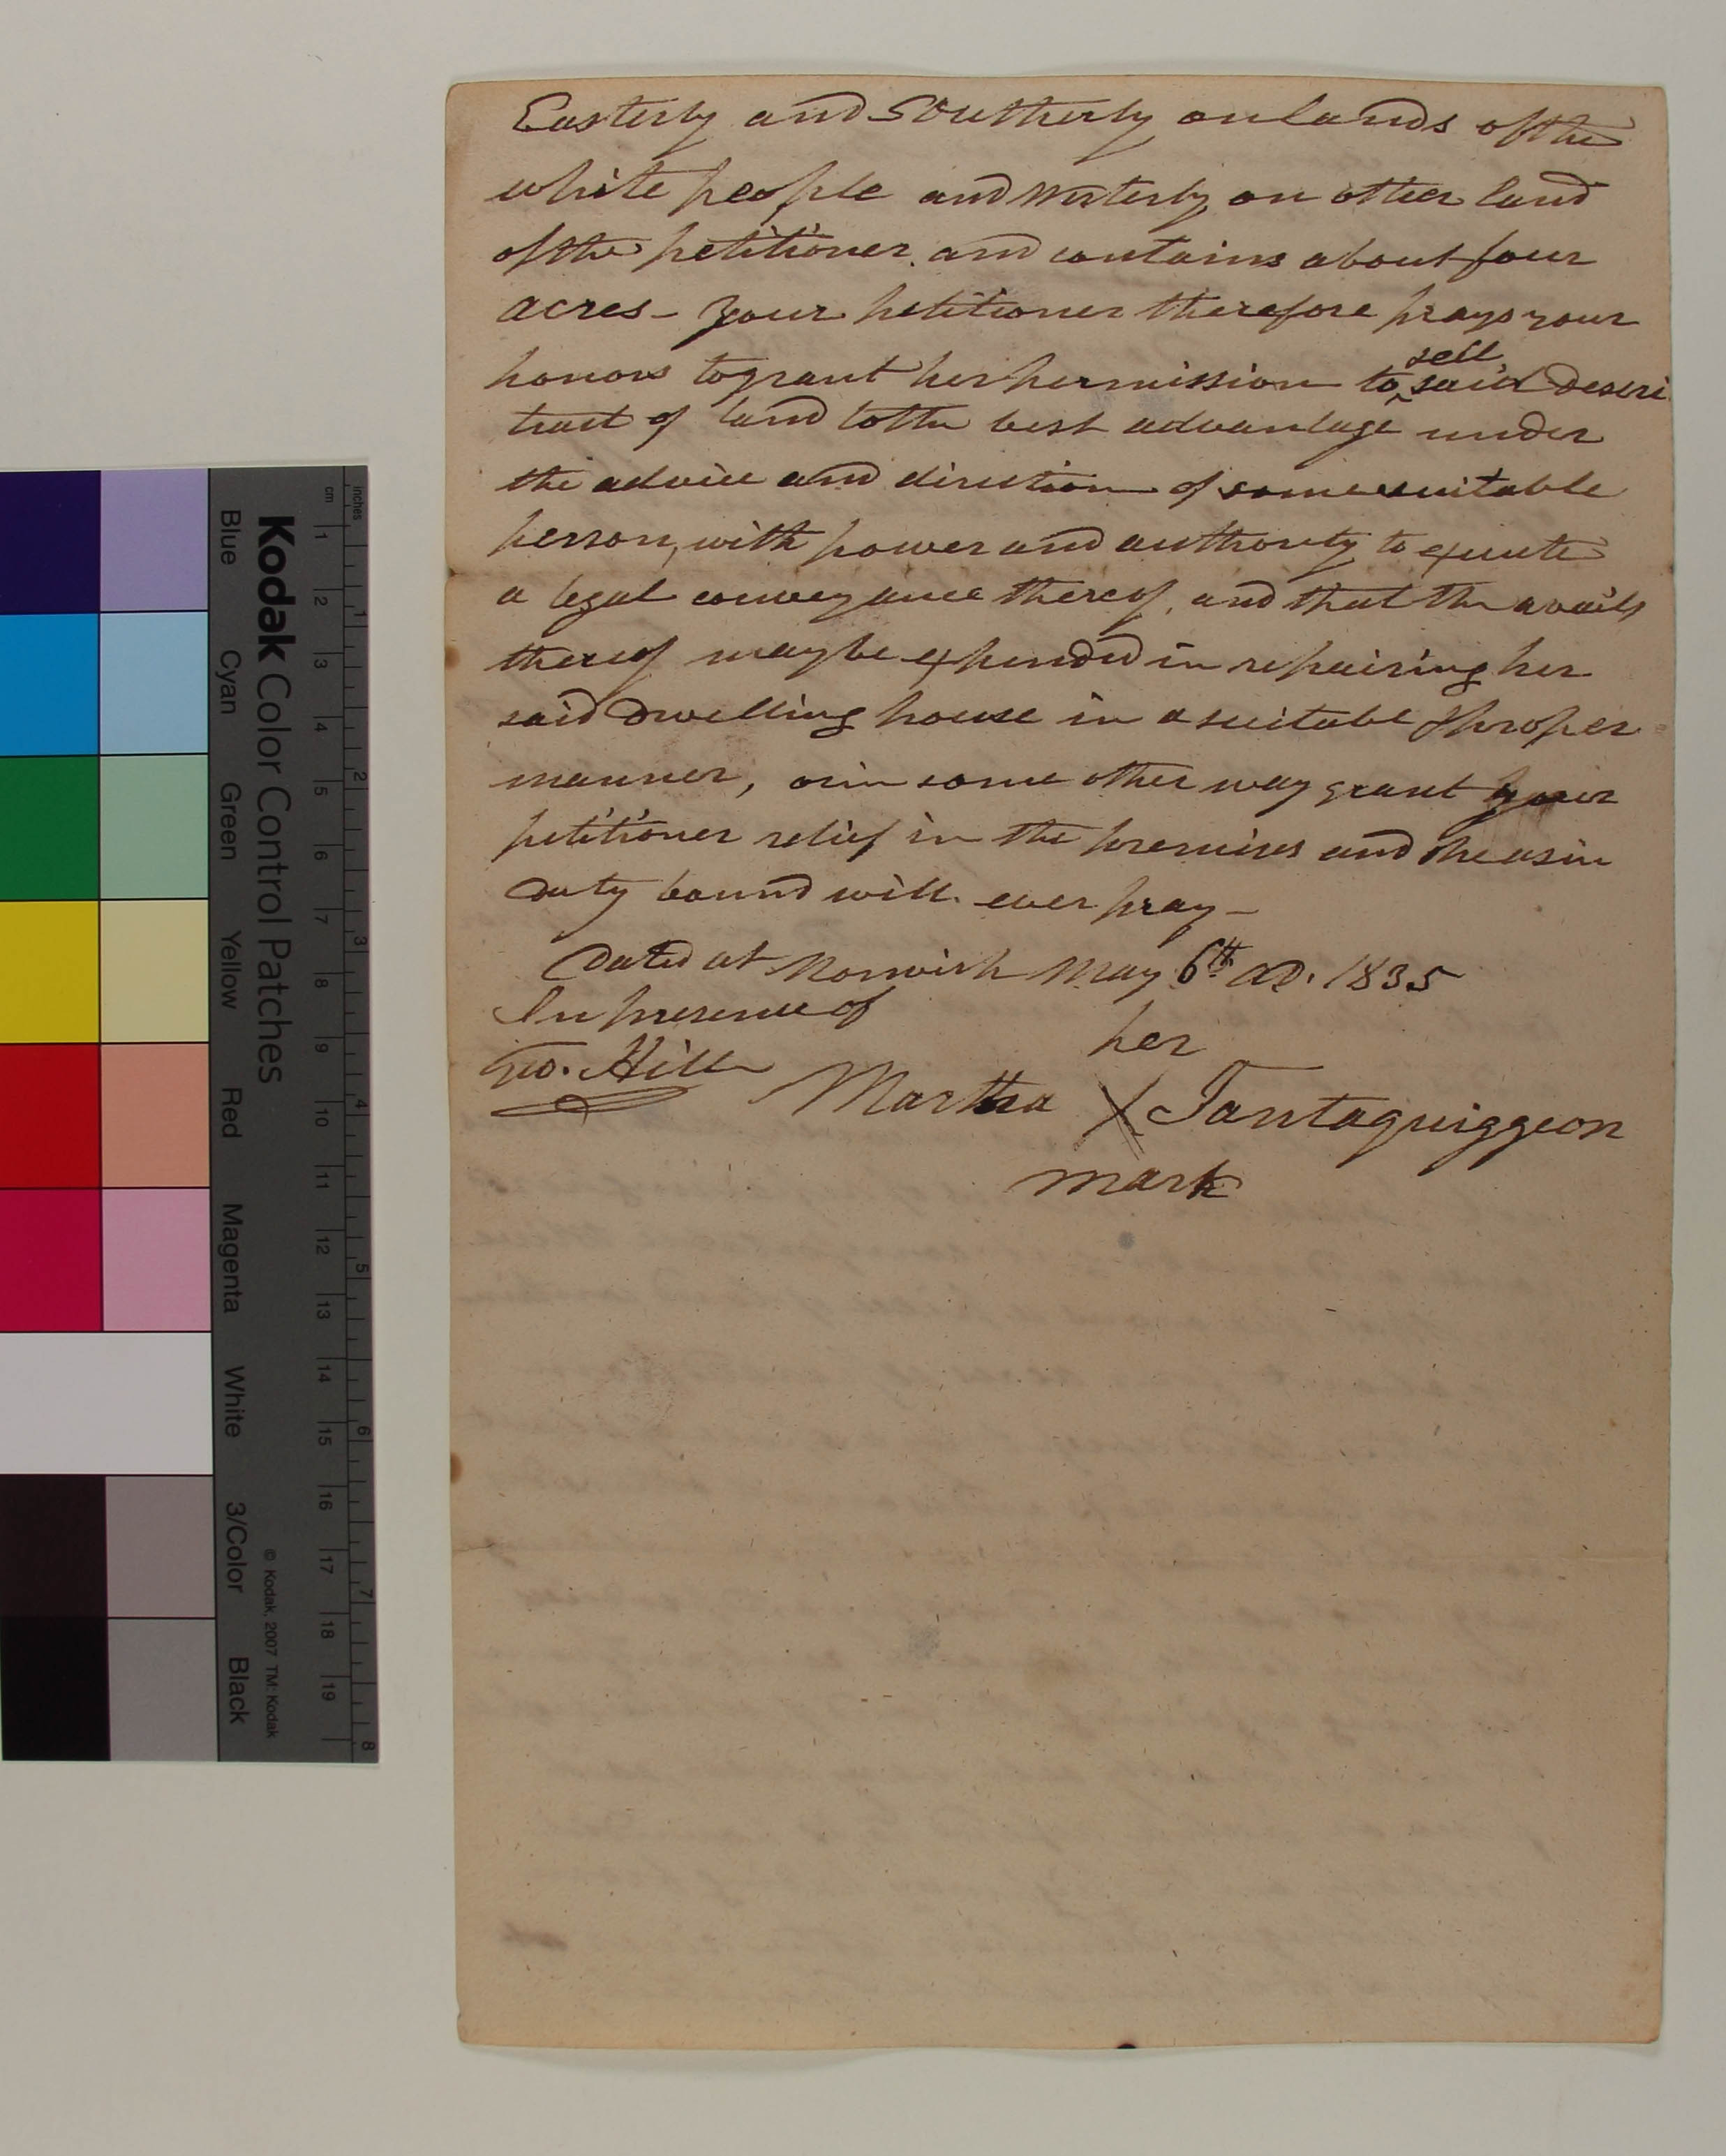 Easterly and Southerly on lands of the
white people and Westerly on other land
of the petitioner. and contains about four
acres - your petitioner therefore prays your
honors to grant her permission to ^ sell said descri
tract of land to the best advantage under
the advice and direction of some suitable
person, with power and authority to execute
a legal conveyance thereof, and that the avails
thereof may be expended in repairing her
said dwelling house in a suitable & proper
manner, or in some other way grant your
petitioner relief in the premises and she as in
duty bound will ever pray -
Dated at Norwich May 6th AD. 1835
In presence of
her
Geo. Hill Martha X Tantaquiggeon
mark
Kodak Color Control Patches
Blue Cyan Green Yellow Red Magenta White 3/Color Black
© Kodak, 2007 TM: Kodak
cm 1 2 3 4 5 6 7 8 9 10 11 12 13 14 15 16 17 18 19
inches 1 2 3 4 5 6 7 8